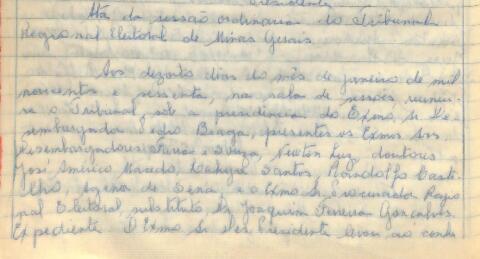 Presidente
Ata da sessão ordinária do Tribunal
Regional Eleitoral de Minas Gerais
Aos dezoito dias do mês de janeiro de mil
novecentos e sessenta, na sala de sessões reuniu-
se o Tribunal, sob a presidência do Exmo. Sr. De-
sembargador Pedro Braga, presentes os Exmos. Srs.
Desembargadores Faria e Souza, Newton Luz, doutores
José Américo Macedo, Santos, Randolfo Casti-
lho, Agenor de Sena e o Exmo. Sr. Procurador Regio
nal Eleitoral, substituto Dr. Joaquim Ferreira Gonçalves.
Expediente O Exmo. Sr. Des. Presidente levou ao conhe